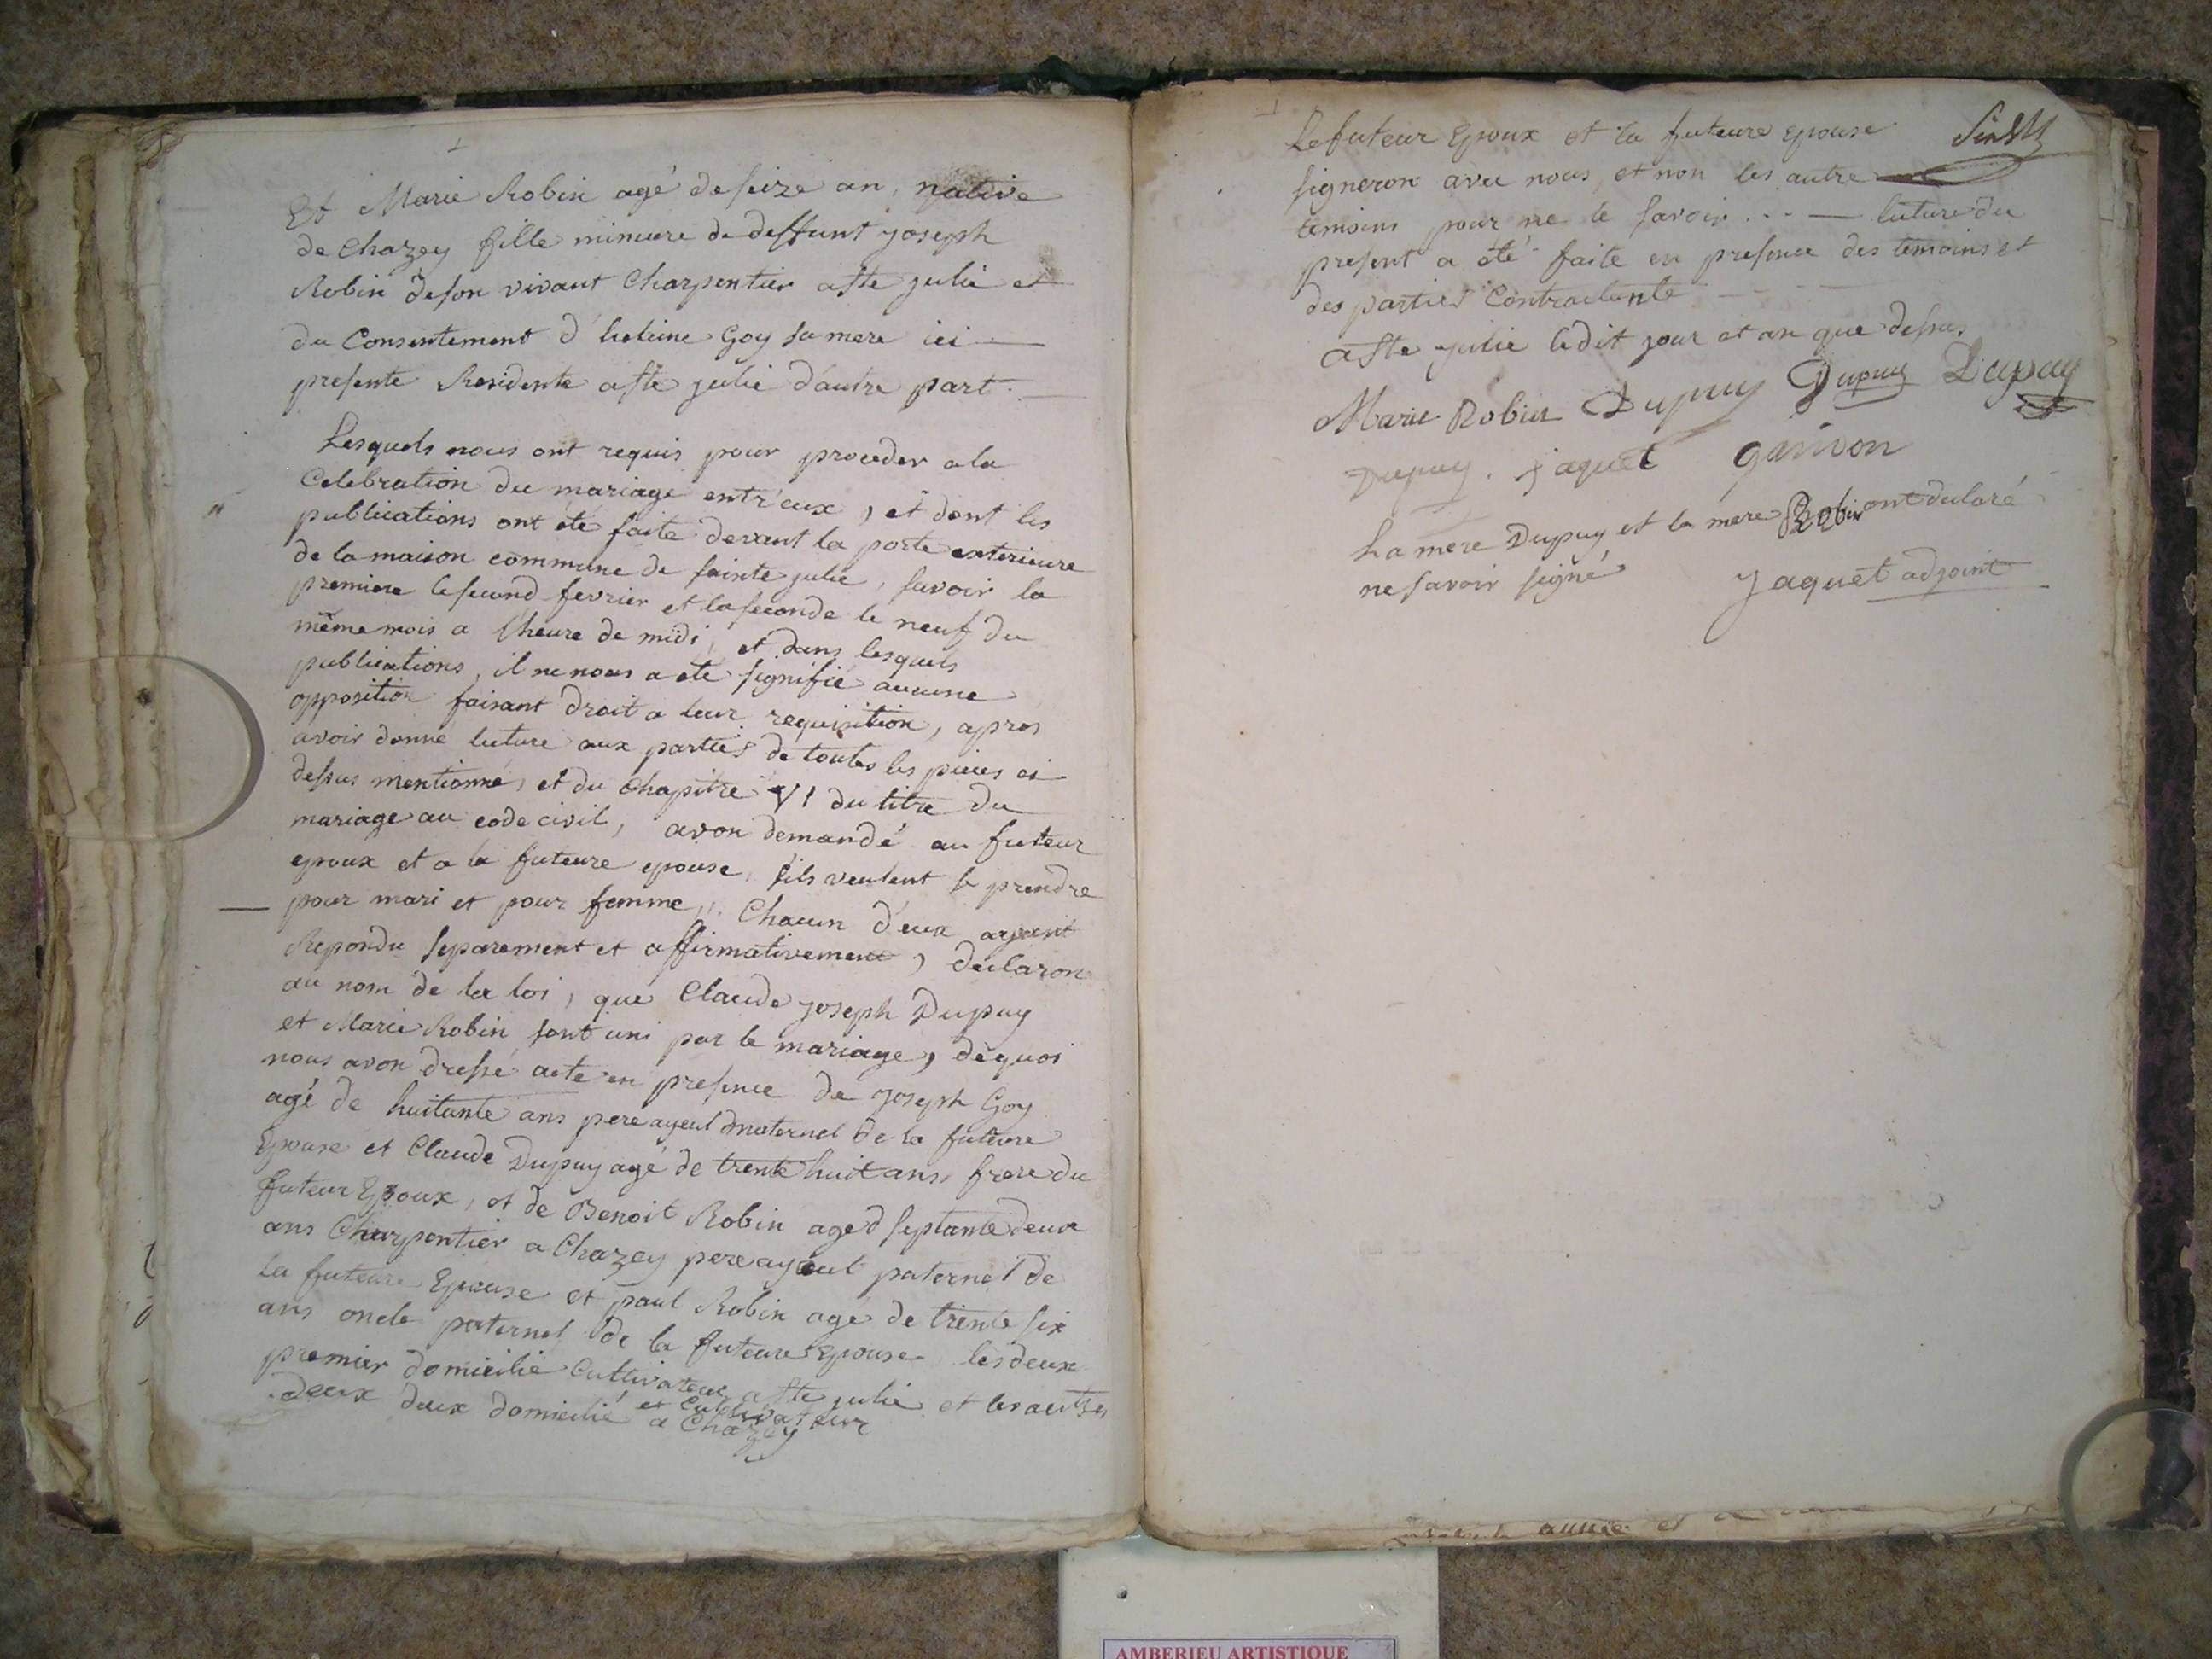 Et Marie Robin agé de seize an, native
de Chazey fille mineure de deffunt joseph
Robin de son vivant Charpentier a Ste julie et
du Consentement d'heleine Goy sa mere ici
presente Residente a Ste julie d'autre part.
Lesquels nous ont requis pour proceder a la
Celebration du mariage entr'eux, et dont les
publications ont été faite devant la porte exterieure
de la maison commune de sainte julie, savoir la
premiere le second fevrier et la seconde le neuf du
même mois a l'heure de midi, et dans lesquels
publications, il ne nous a été signifié aucune
opposition faisant droit a leur requisition, apres
avoir donné lecture aux parties de toutes les pieces ci
dessus mentionné, et du Chapitre VI du titre du
mariage au code civil, avon demandé au futeur
epoux et a la futeure epouse, s'ils veulent se prendre
pour mari et pour femme,, Chacun d'eux ayant
Repondu separement et affirmativement, declaron
au nom de la loi, que Claude joseph Dupuy
et Marie Robin sont uni par le mariage, dequoi
nous avon dressé acte en presence de joseph Goy
agé de huitante ans pere ayeul maternel de la futeure
Epouse et Claude Dupuy agé de trente huit ans, frere du
futeur Epoux, et de Benoit Robin age d septante deux
ans Charpentier a Chazey pere ayeul paternel de
la futeure Epouse et paul Robin agé de trente six
ans oncle paternel de la futeure Epouse les deux
premier domicilié Cultivateur a Ste julie et les autres
deux domicilié et Cultivateur
a Chazey
Le futeur Epoux et la futeure epouse
signeron avec nous, et non les autre
temoins pour ne le savoir... — lecture du
present a été faite en presence des temoins et
des parties Contractante
a Ste julie ledit jour et an que dessus
Marie Robin Dupuy Dupuy Dupuy
Dupuy. jaquet ganivon
La mere Dupuy et la mere Robin ont declaré
ne savoir signé Jaquet adjoint
AMBERIEU ARTISTIQUE